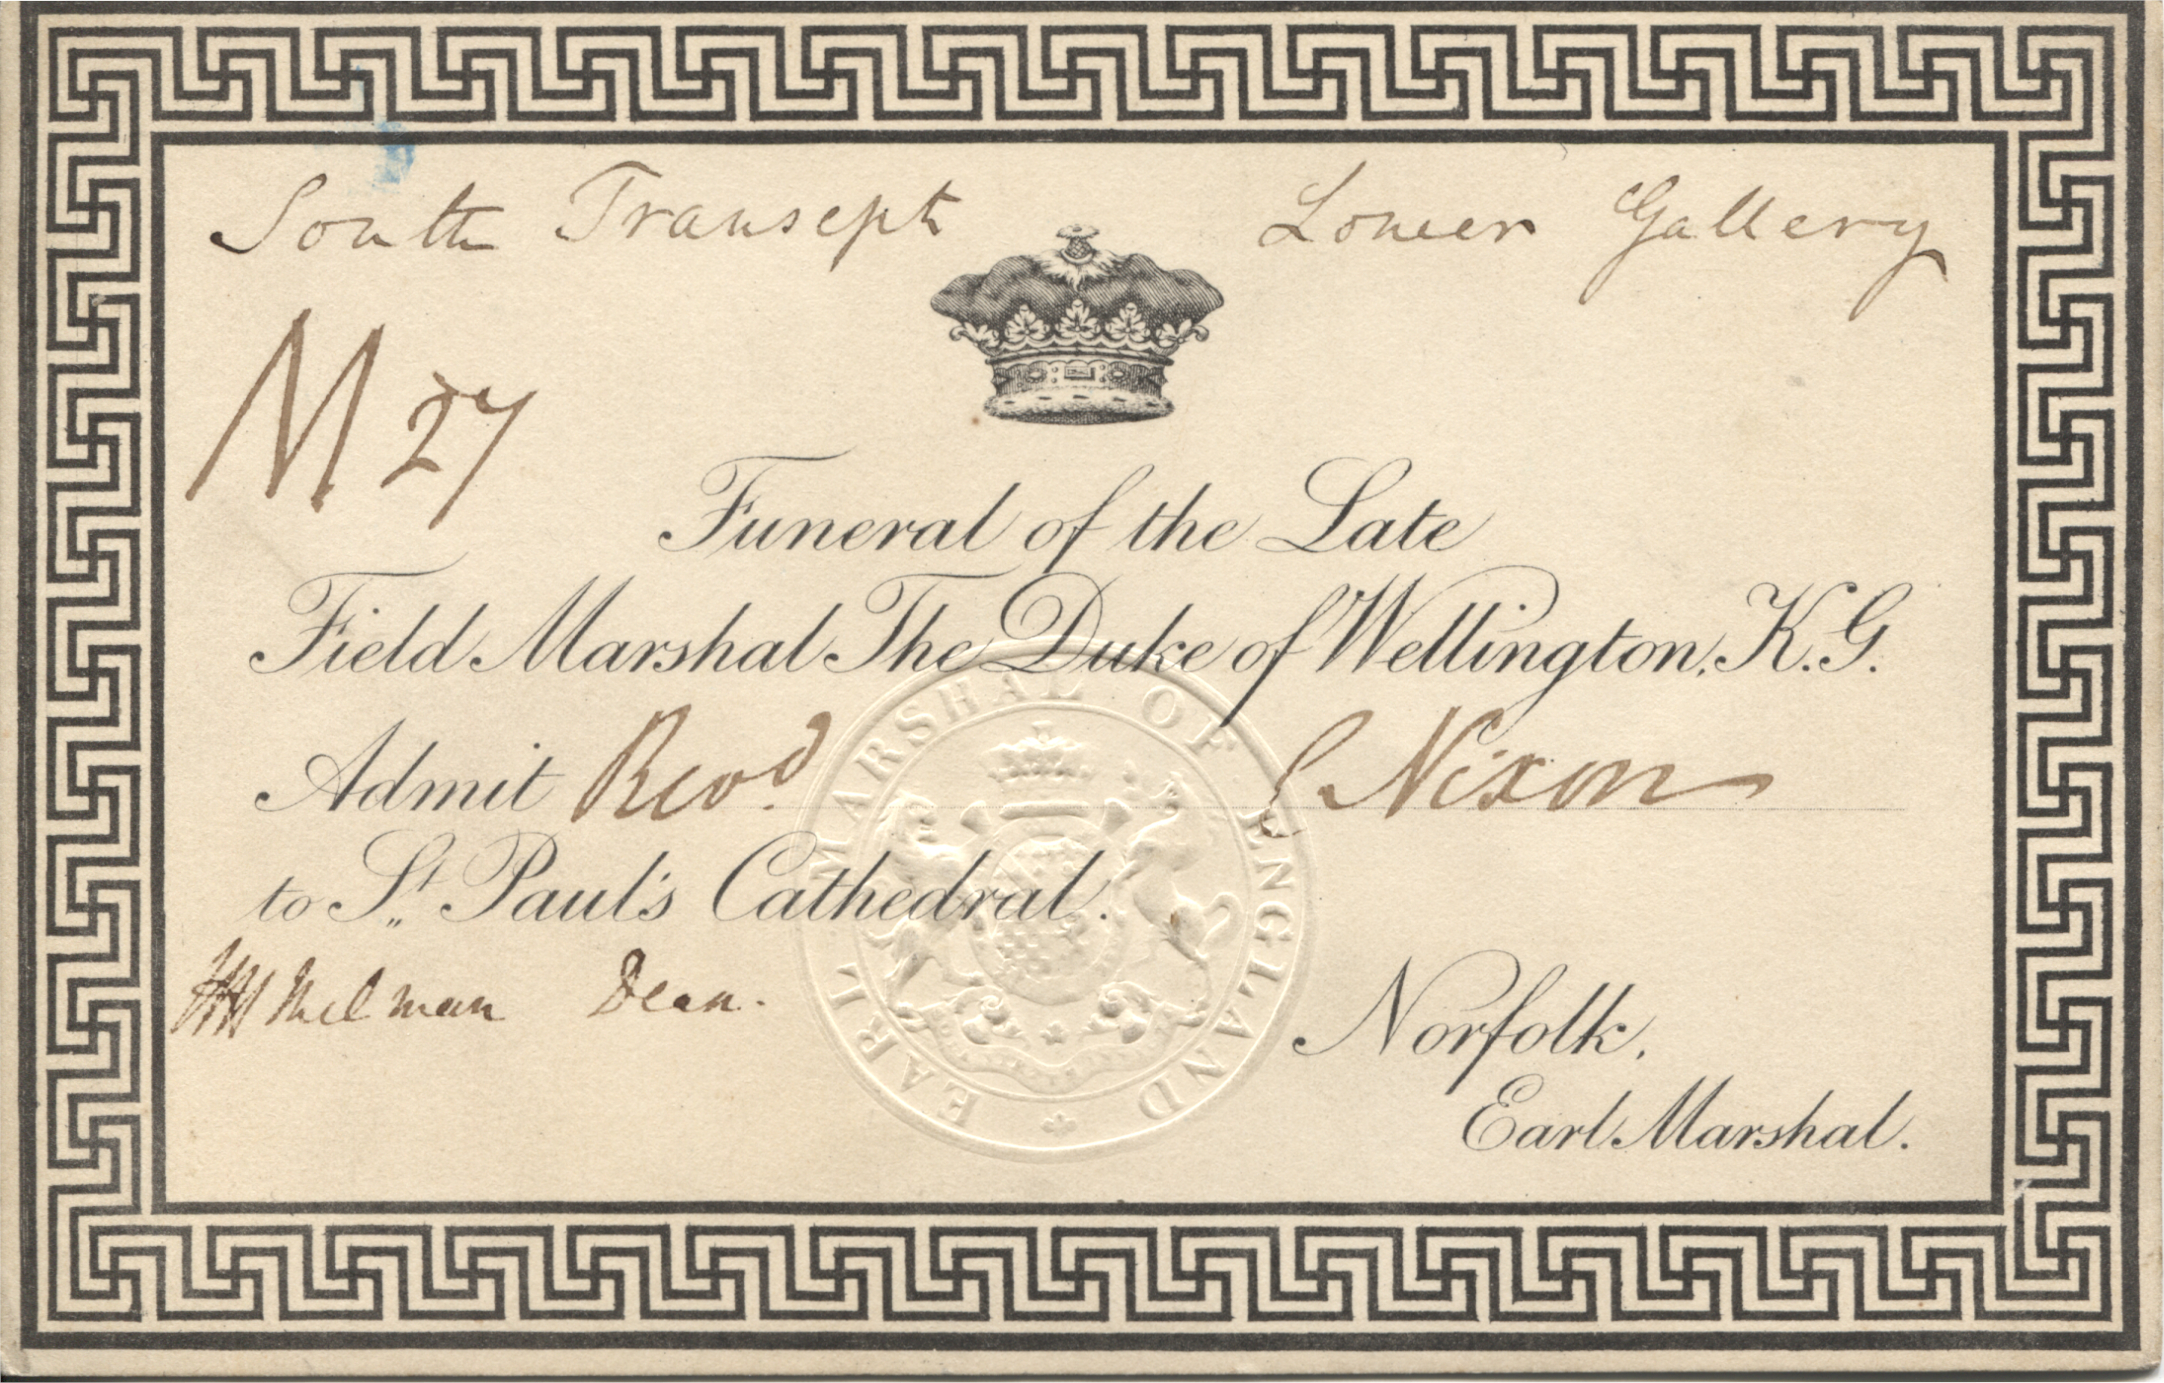 South Transept Lower Gallery
M 27
Funeral of the Late
Field Marshal The Duke of Wellington, K.G.
Admit Revd. E Nixon
to St. Paul's Cathedral.
HH Milman Dean.
Norfolk,
Earl Marshal.
EARL MARSHAL OF ENGLAND